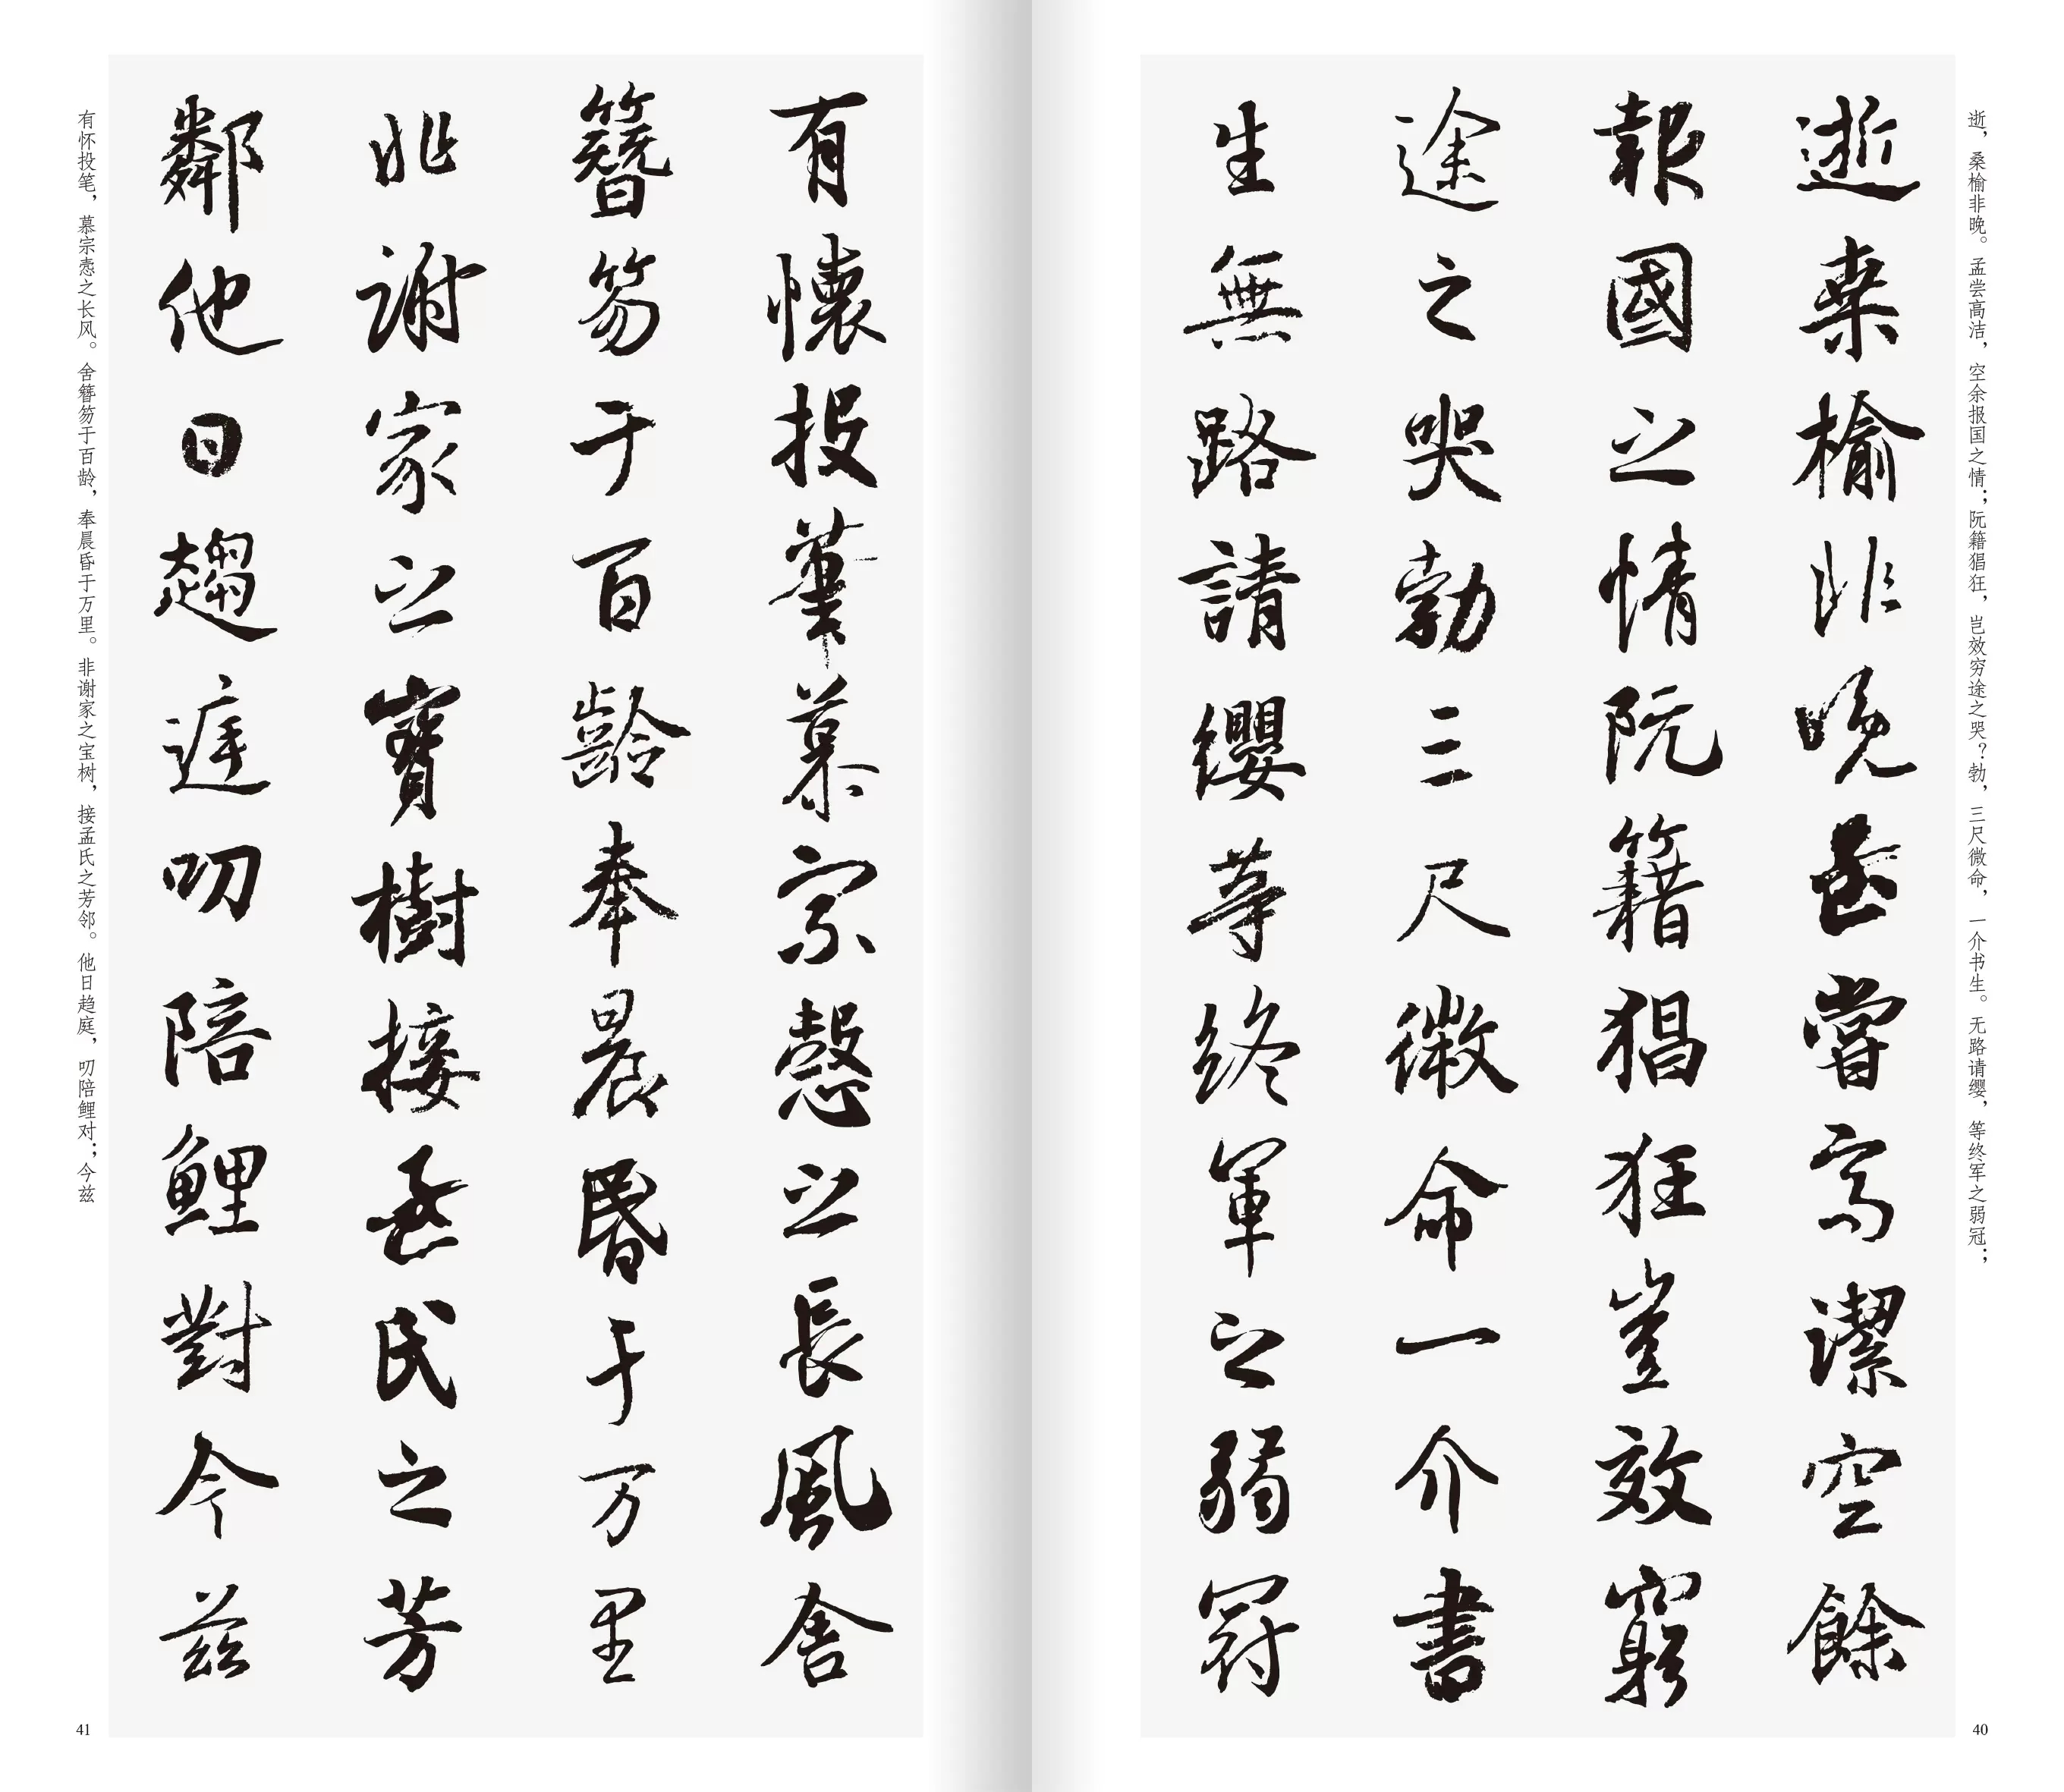 逝，桑榆非晚。孟尝高洁，空余报国之情；阮籍猖狂，岂效穷途之哭？勃，三尺微命，一介书生。无路请缨，等终军之弱冠；
逝桑榆非晚孟嘗高潔空餘
報國之情阮籍猖狂豈效窮
途之哭勃三尺微命一介書
生無路請纓等終軍之弱冠
40
有懷投筆慕宗慤之長風舍
簪笏于百齡奉晨昏于万里
非謝家之寶樹接孟氏之芳
鄰他日趨庭叨陪鯉對今兹
有怀投笔，慕宗悫之长风。舍簪笏于百龄，奉晨昏于万里。非谢家之宝树，接孟氏之芳邻。他日趋庭，叨陪鲤对；今兹
41